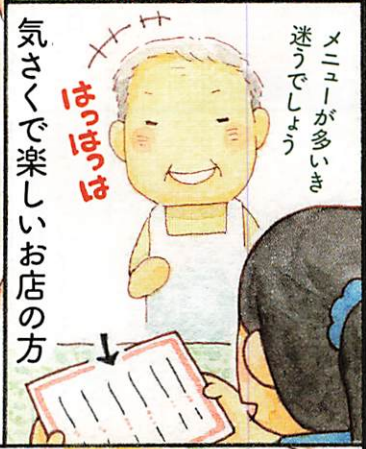 メニューが多いき
迷うでしょう
はっはっは
気さくで楽しいお店の方